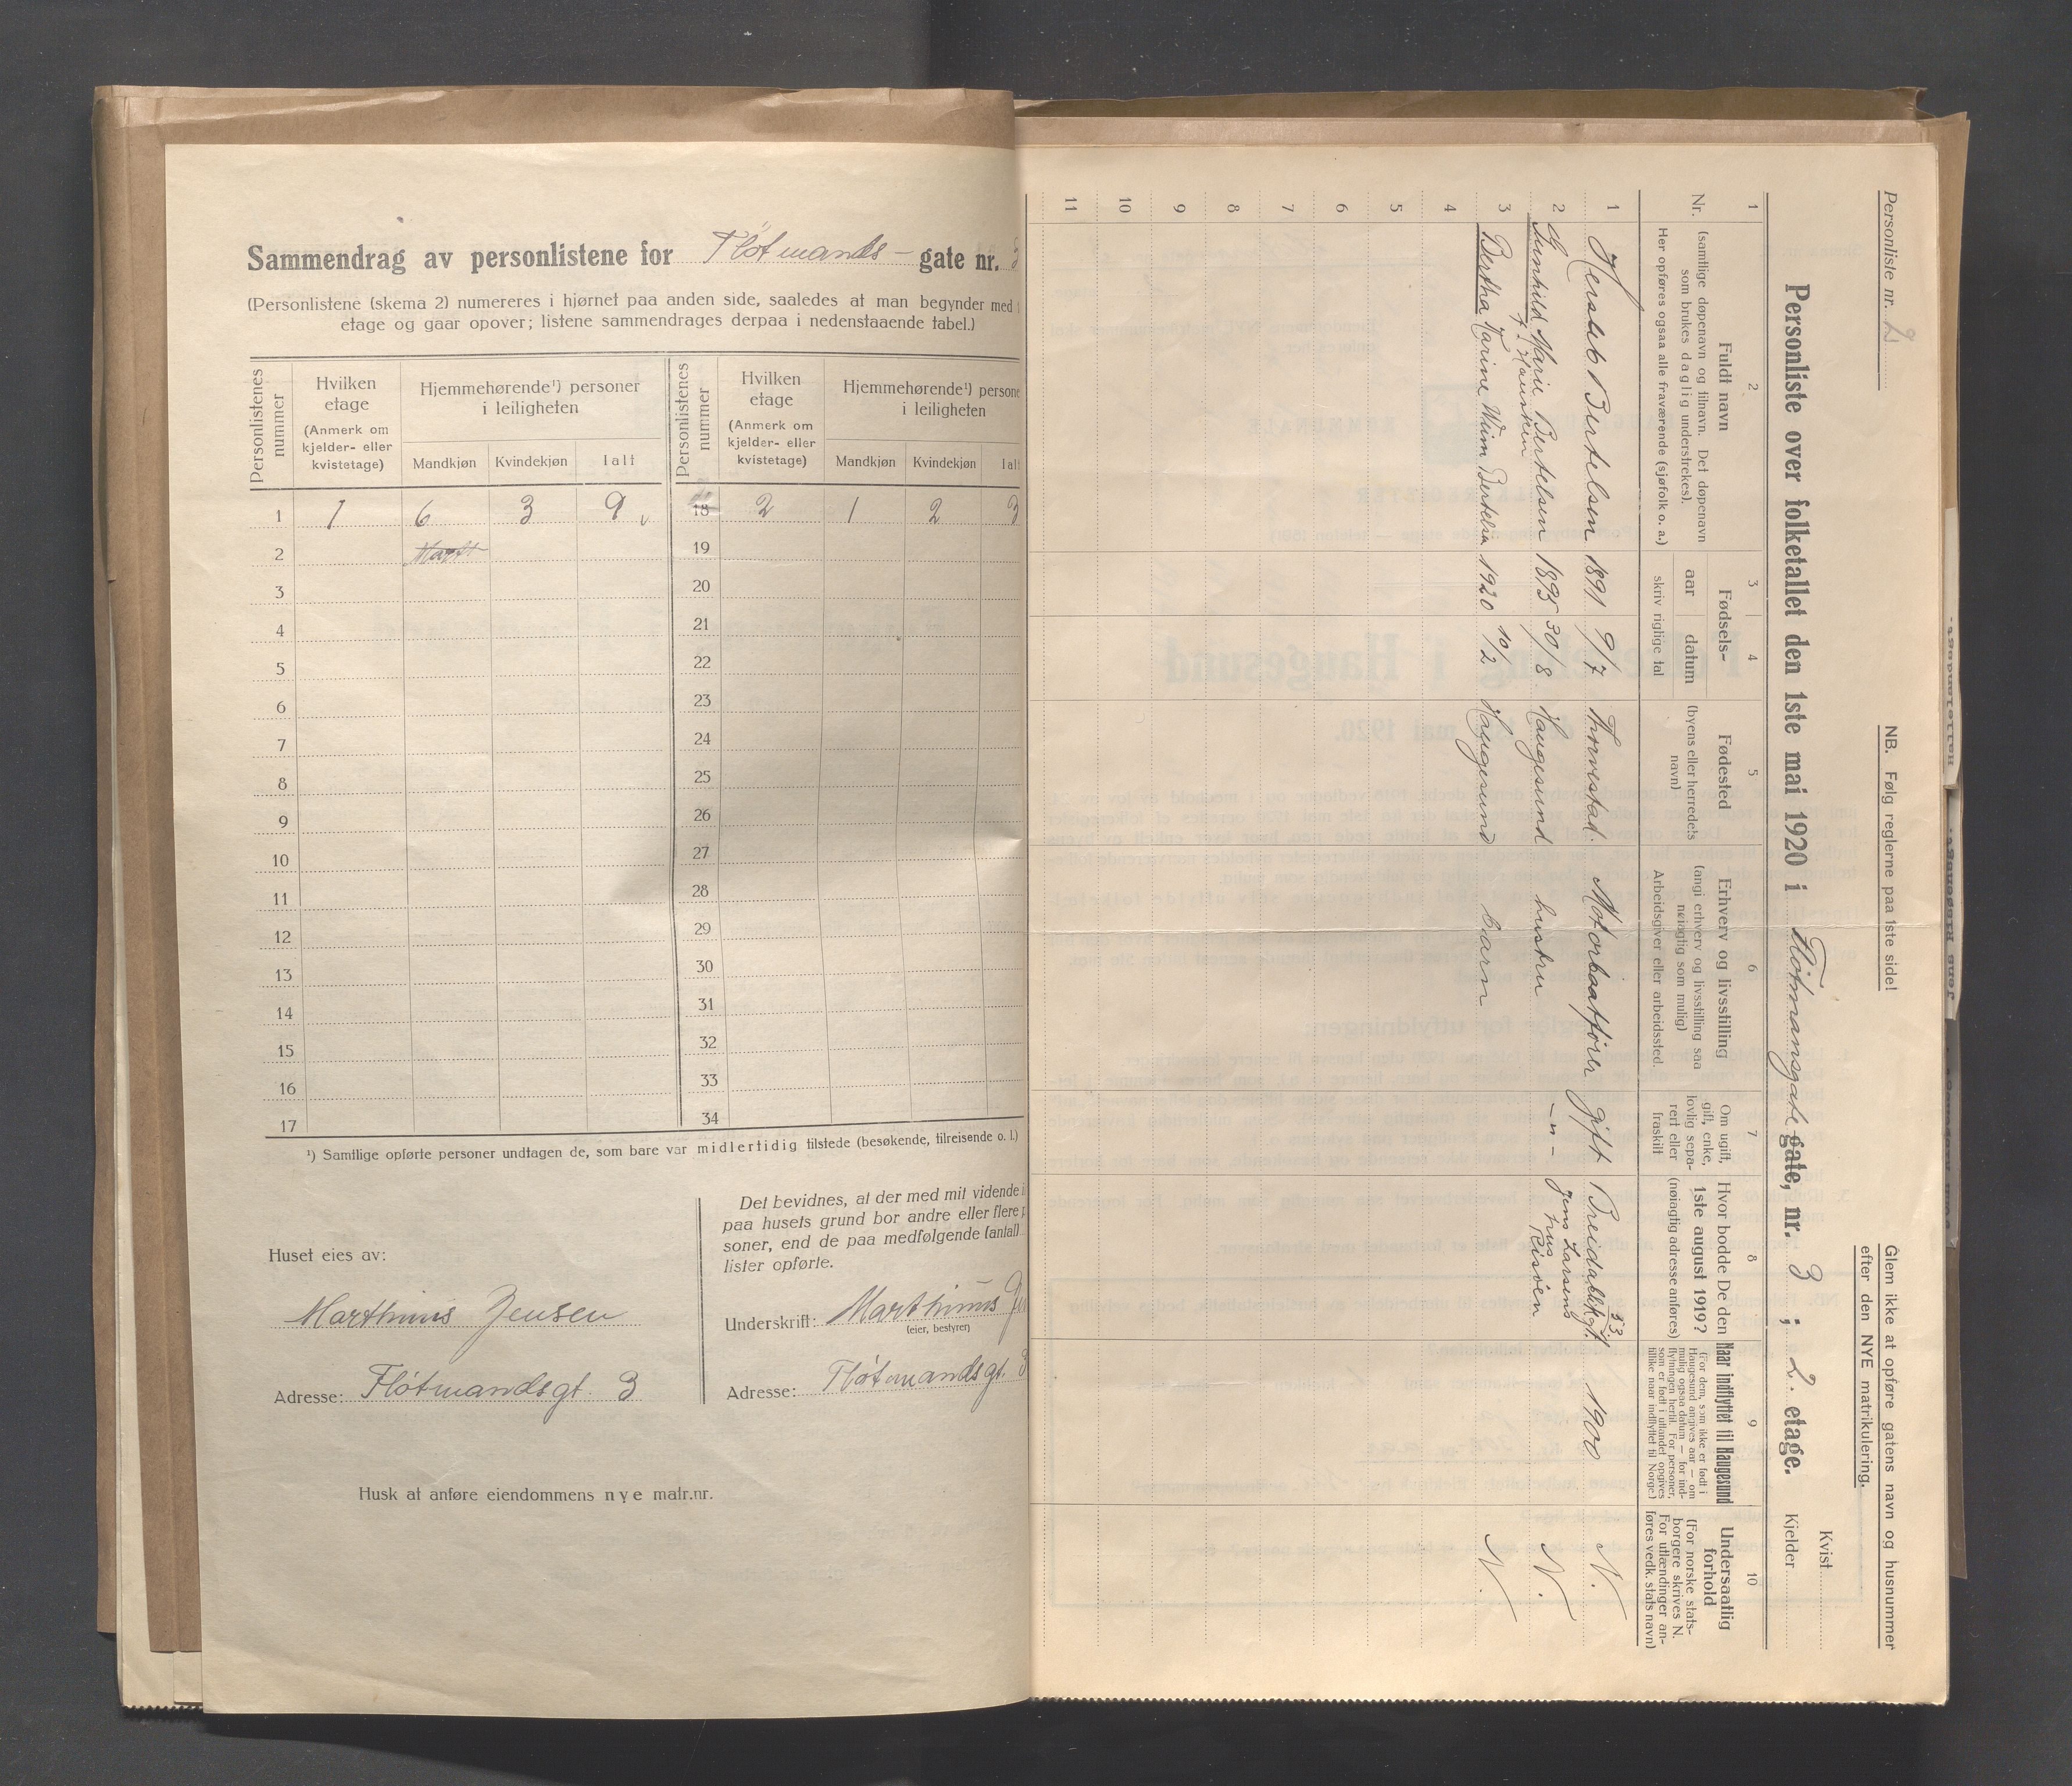 Sammendrag av personlistene for Fløtmands- gate nr. 3
(Personlistene (skema 2) numereres i hjørnet paa anden side, saaledes at man begynder med
etage og gaar opover; listene sammendrages derpaa i nedenstaaende tabel.)
Personlistenes nummer
Hvilken etage
(Anmerk om kjelder- eller kvistetage)
Hjemmehørende¹) personer i leiligheten
Mandkjøn Kvindekjøn Ialt
Personlistenes nummer
Hvilken etage
(Anmerk om kjelder- eller kvistetage)
Hjemmehørende¹) persone
i leiligheten
Mandkjøn Kvindekjøn Ialt
1 1 6 3 9 18 2 1 2 3
2 19
3 20
4 21
5 22
6 23
7 24
8 25
9 26
10 27
11 28
12 29
13 30
14 31
15 32
16 33
17 34
¹) Samtlige opførte personer undtagen de, som bare var midlertidig tilstede (besøkende, tilreisende o. l.)
Huset eies av:
Marthinus Jensen
Adresse: Fløtmandsgt. 3
Det bevidnes, at der med mit vidende i
paa husets grund bor andre eller flere p
soner, end de paa medfølgende (antall
lister opførte.
Underskrift: Marthinus Je
(eier, bestyrer)
Adresse: Fløtmandsgt. 3
Husk at anføre eiendommens nye matr.nr.
Personliste nr. 2
NB. Følg reglerne paa 1ste side!
Glem ikke at opføre gatens navn og husnummer
efter den NYE matrikulering.
Personliste over folketallet den 1ste mai 1920 i Fløtmansgate gate, nr. 3 ; 2. etage.
Kvist
Kjelder
1 2 3 4 5 6 7 8 9 10
Nr.
Fuldt navn
(samtlige døpenavn og tilnavn. Det døpenavn
som brukes daglig understrekes).
Her opføres ogsaa alle fraværende (sjøfolk o. a.)
Fødsels-
aar datum
skriv rigtige tal
Fødested
(byens eller herredets
navn)
Erhverv og livsstilling
(angi erhverv og livsstilling saa
nøiagtig som mulig)
Arbeidsgiver eller arbeidssted.
Om ugift,
gift, enke,
lovlig sepa-
rert eller
fraskilt
Hvor bodde De den
1ste august 1919?
(nøiagtig adresse anføres)
Naar indflyttet til Haugesund
(For dem, som ikke er født i
Haugesund angives aar — om
mulig ogsaa datum — for ind-
flytningen hertil. For personer,
som er født i utlandet opgives
tillike naar indflyttet til Norge.)
Undersaatlig
forhold
(For norske stats-
borgere skrives N.
For utlændinger an-
føres vedk. stats navn)
1 Hersleb Bertelsen 1891 9/7 Thorvestad. Motorbaatfører gift Breidablikgt. 33. 1900 N.
2 Gunhild Marie Bertelsen 1895 30/8 Haugesund hustru -"- Jens Larsens hus Risøen N.
f. Hausken
3 Bertha Karine Wiim Bertelsen 1920 10/2 Haugesund barn N.
4
5
6
7
8
9
10
11